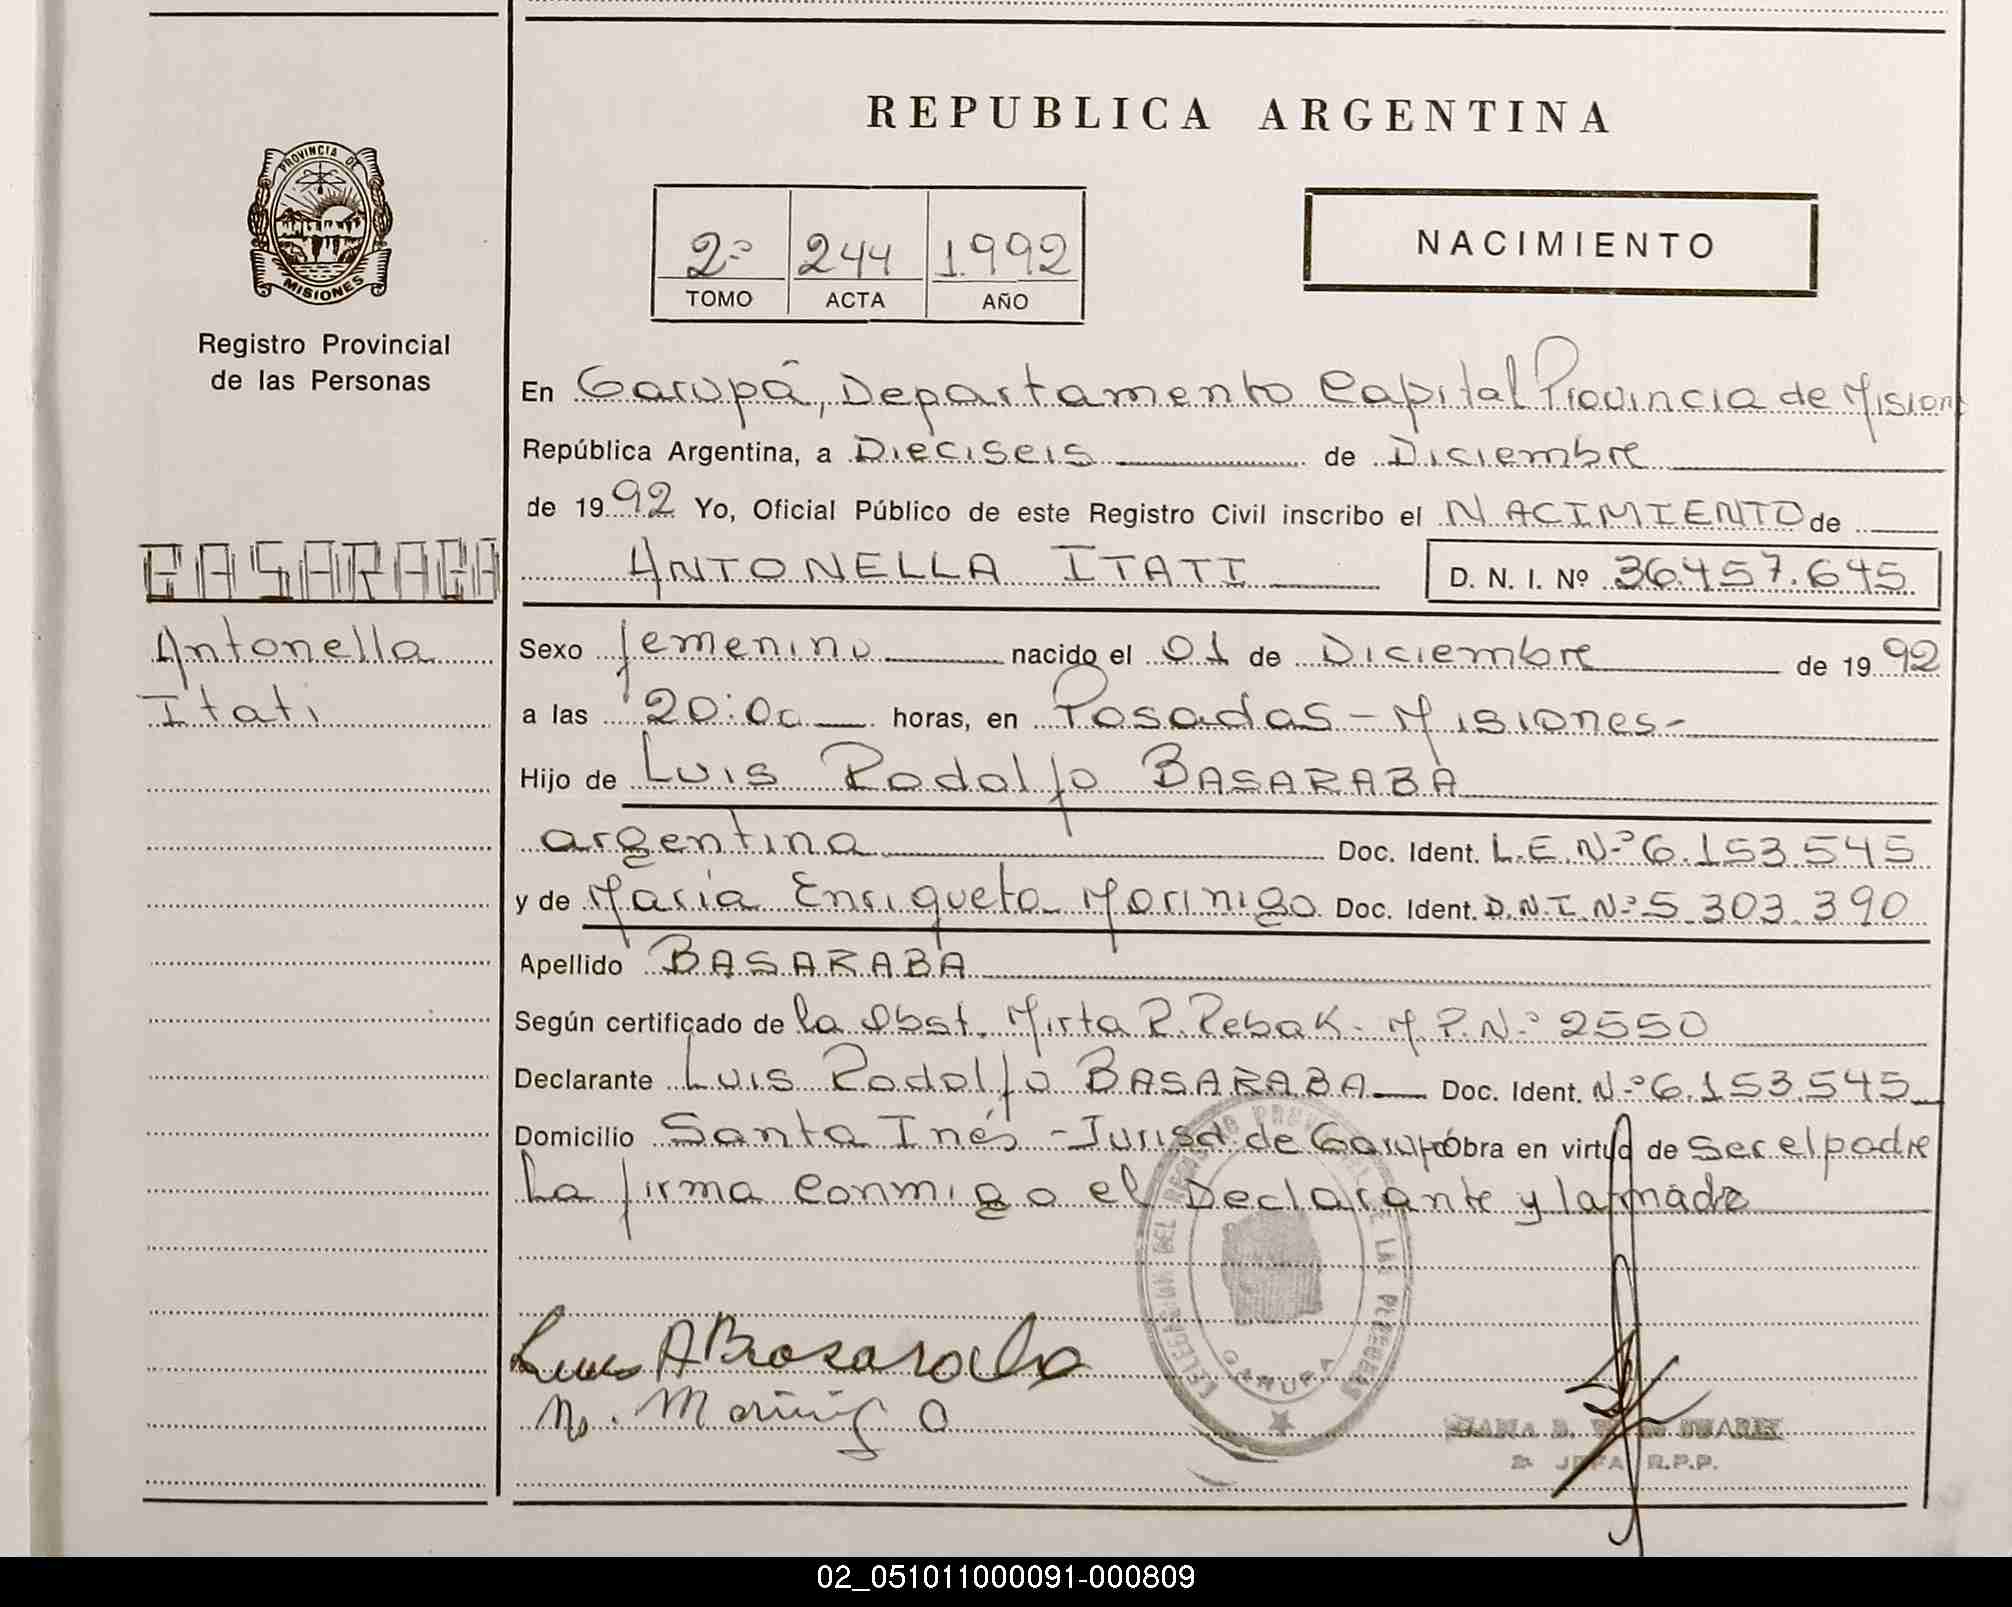 REPUBLICA ARGENTINA
PROVINCIA DE
MISIONES
Registro Provincial
de las Personas
2º 244 1.992
TOMO ACTA AÑO
NACIMIENTO
En Garupá, Departamento Capital Provincia de Mision
República Argentina, a Dieciseis de Diciembre
de 1992 Yo, Oficial Público de este Registro Civil inscribo el NACIMIENTO de
BASARABA
Antonella
Itati
ANTONELLA ITATI D. N. I. Nº 36.457.645
Sexo femenino nacido el 01 de Diciembre de 1992
a las 20:00 horas, en Posadas - Misiones-
Hijo de Luis Rodolfo BASARABA
argentina Doc. Ident. L.E.Nº 6.153.545
y de Maria Enriqueta Morinigo Doc. Ident. D.N.I.Nº 5.303.390
Apellido BASARABA
Según certificado de la Obst. Mirta R. Rebak - M.P.Nº 2550
Declarante Luis Rodolfo BASARABA Doc. Ident. Nº 6.153.545
Domicilio Santa Inés - Jurisd. de Garupá Obra en virtud de ser el padre
La firma conmigo el Declarante y la madre
DELEGACION DEL REGISTRO PROVINCIAL DE LAS PERSONAS
GARUPA
Luis R Basaraba
M. Morinigo
JEFA R.P.P.
02_051011000091-000809